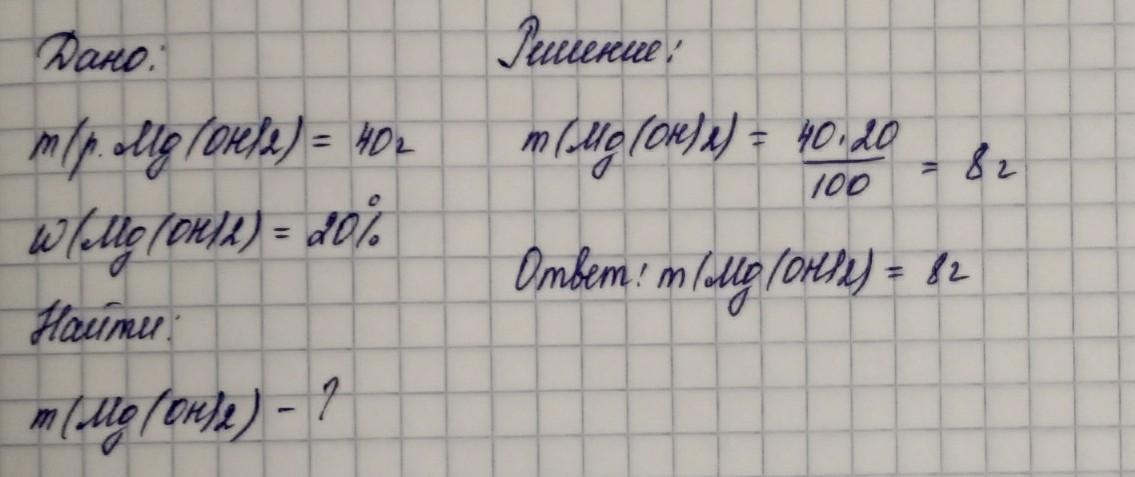 Дано:
m(р. Mg(OH)2) = 40г
w(Mg(OH)2) = 20%
Найти:
m(Mg(OH)2) - ?
Решение:
m(Mg(OH)2) = 40·20/100 = 8г
Ответ: m(Mg(OH)2) = 8г